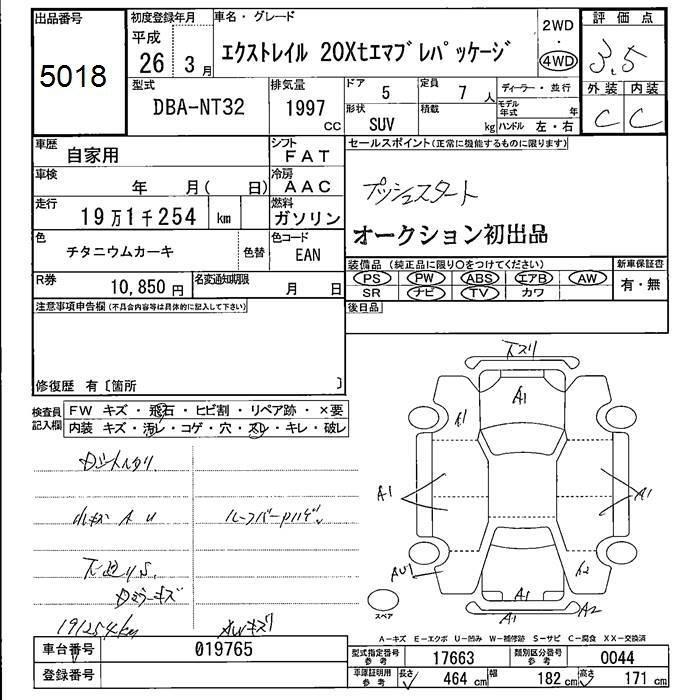 出品番号
5018
初度登録年月
平成
26 3月
車名・グレード
エクストレイル 20Xtエマブレパッケージ
2WD
・
4WD
評価点
3.5
外装 内装
C C
型式
DBA-NT32
排気量
1997
cc
ドア 5
定員 7 人
形状
SUV
積載
kg
ディーラー・並行
モデル年式 年
ハンドル 左・右
車歴
自家用
シフト
FAT
車検
年 月( 日)
冷房
AAC
走行
19万1千254 km
燃料
ガソリン
色
チタニウムカーキ
色替
色コード
EAN
R券
10,850円
名変通知期限
月 日
セールスポイント(正常に機能するものに限ります)
プッシュスタート
オークション初出品
装備品(純正品に限り○をつけてください)
PS PW ABS エアB AW
SR ナビ TV カワ
新車保証書
有・無
後日品
注意事項申告欄(不具合内容等は具体的に記入して下さい)
修復歴 有〔箇所 〕
検査員
記入欄
FW キズ・飛石・ヒビ割・リペア跡・×要
内装 キズ・汚レ・コゲ・穴・スレ・キレ・破レ
A U
ルーフバー
キズ
191254km
AWキズ
下スリ
A1
A1
A1
A1
AU1
A2
A1
A1
A2
スペア
A-キズ E-エクボ U-凹み W-補修跡 S-サビ C-腐食 XX-交換済
車台番号
019765
登録番号
型式指定番号
参考
17663
類別区分番号
参考
0044
車庫証明用
参考
長さ 464 cm
幅 182 cm
高さ 171 cm